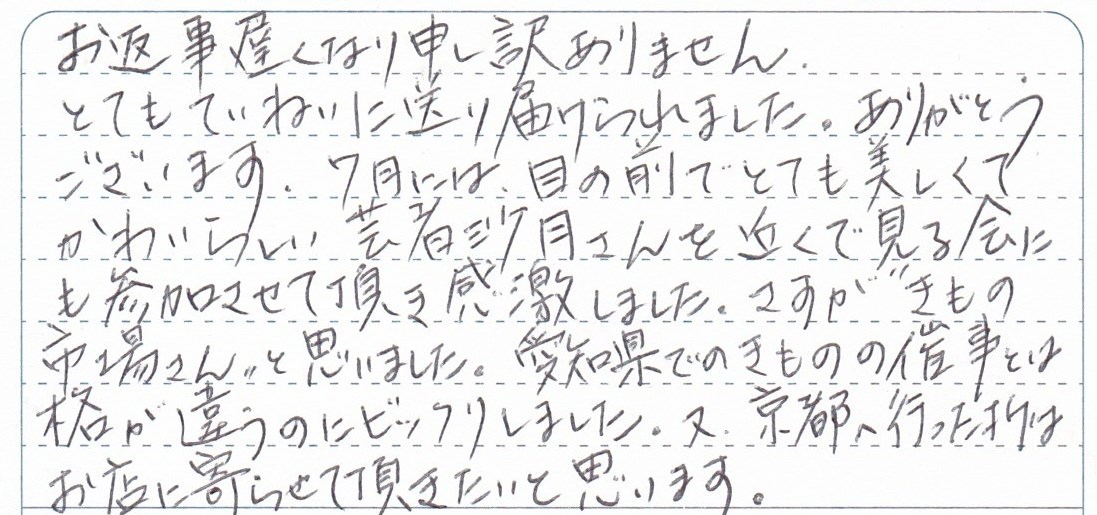 お返事遅くなり申し訳ありません.
とてもていねいに送り届けられました。ありがとう
ございます. 7月には、目の前でとても美しくて
かわいらしい芸者 月さんを近くで見る会に
も参加させて頂き感激しました。さすが“きもの
市場さん〟と思いました。愛知県でのきものの催事とは
格が違うのにビックリしました。又、京都へ行った折は
お店に寄らせて頂きたいと思います。